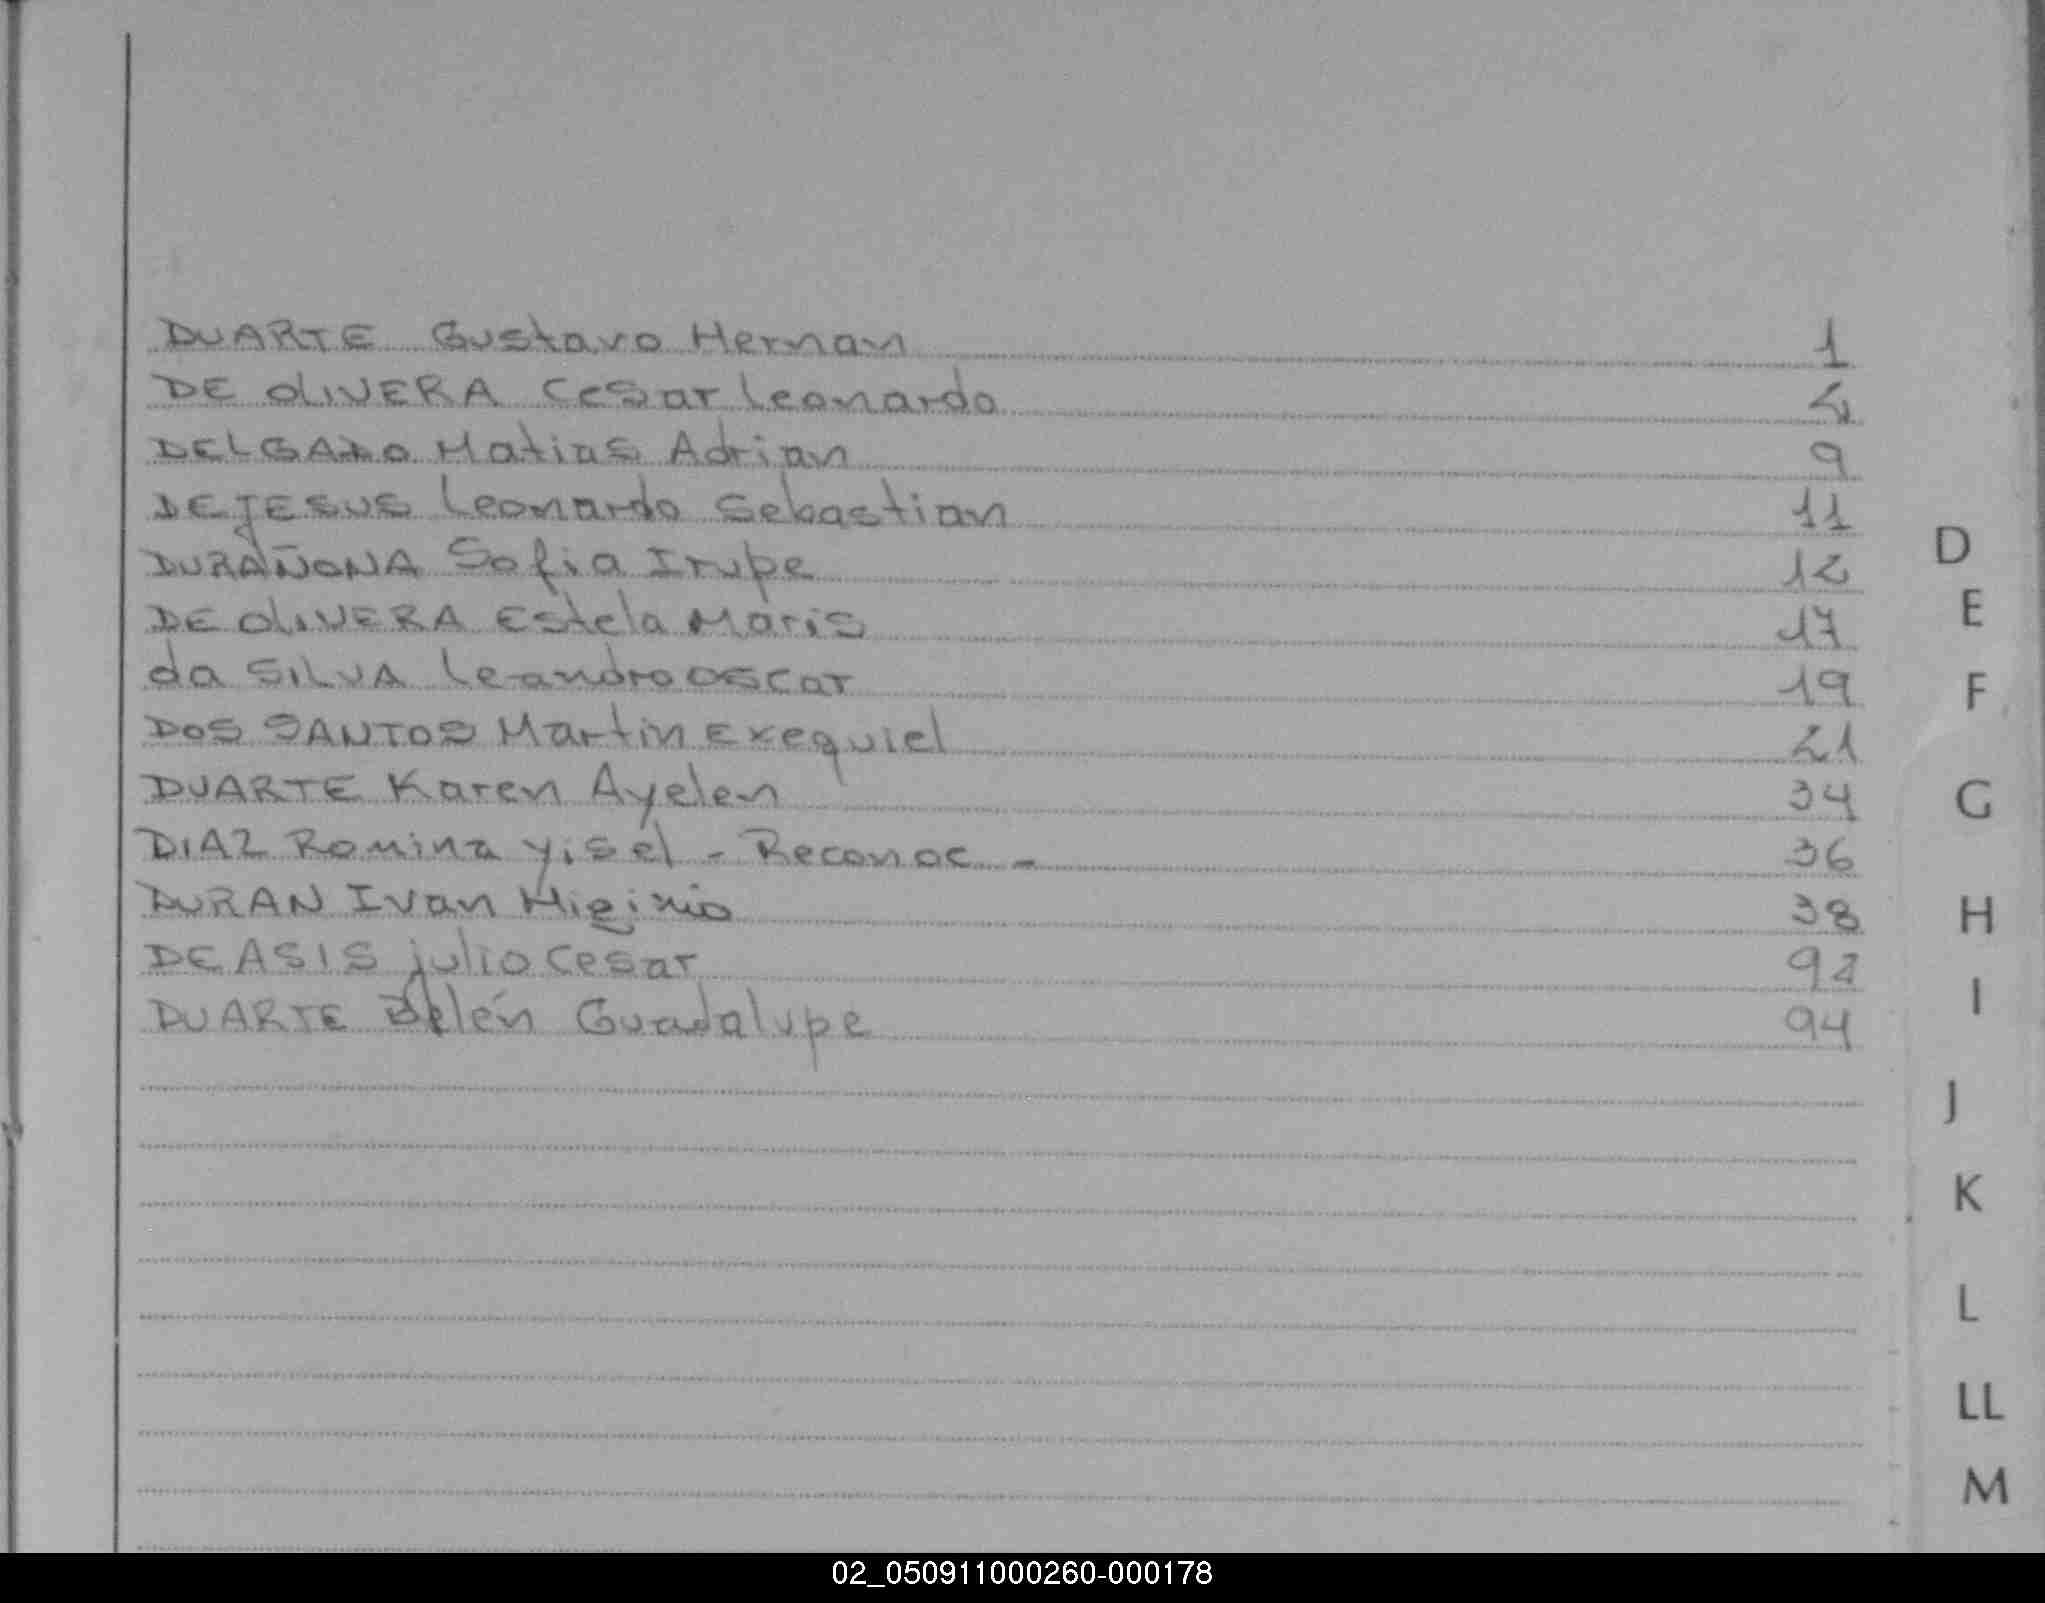 DUARTE Gustavo Hernan 1
DE OLIVERA Cesar Leonardo 2
DELGADO Matias Adrian 9
DE JESUS Leonardo Sebastian 11
DURAÑONA Sofia Irupe 12
DE OLIVERA Estela Maris 17
da SILVA Leandro Oscar 19
DOS SANTOS Martin Exequiel 21
DUARTE Karen Ayelen 34
DIAZ Romina Yisel - Reconoc - 36
DURAN Ivan Higinio 38
DE ASIS Julio Cesar
DUARTE Belén Guadalupe 94
D
E
F
G
H
I
J
K
L
LL
M
02_050911000260-000178